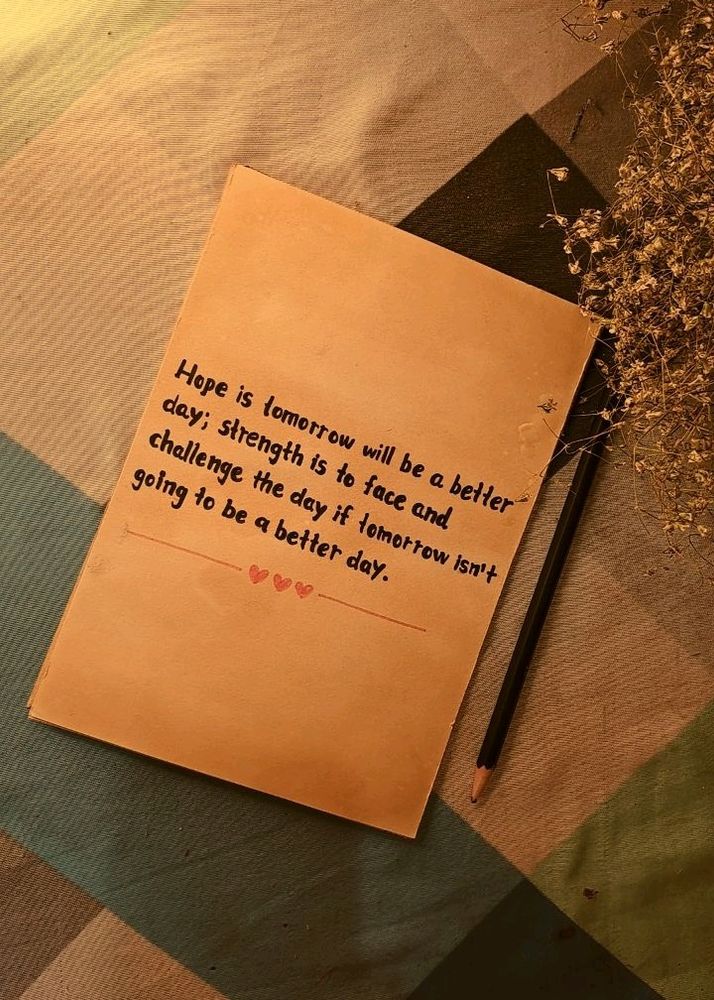 Hope is tomorrow will be a better
day; strength is to face and
challenge the day if tomorrow isn't
going to be a better day.